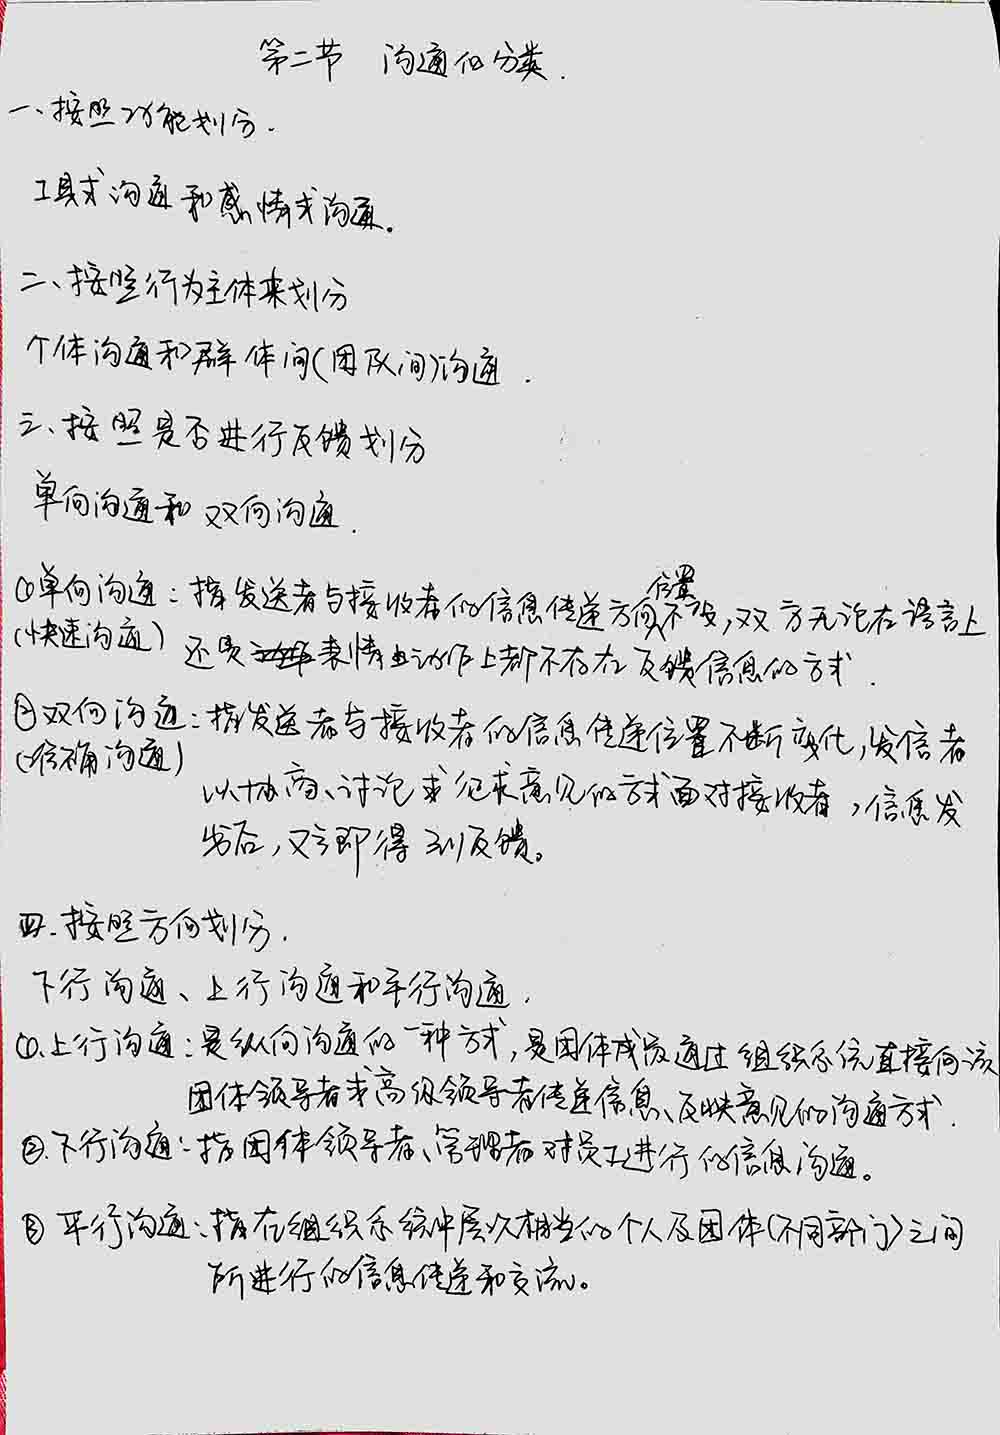 第二节 沟通的分类.
一、按照功能划分.
工具式沟通和感情式沟通。
二、按照行为主体来划分
个体沟通和群体间(团队间)沟通.
三、按照是否进行反馈划分
单向沟通和双向沟通.
位置
①单向沟通:指发送者与接收者的信息传递方向不变,双方无论在语言上
(快速沟通) 还是表情动作上都不存在反馈信息的方式.
②双向沟通:指发送者与接收者的信息传递位置不断变化,发信者
(准确沟通) 以协商、讨论或征求意见的方式面对接收者,信息发
出后,又立即得到反馈。
四.按照方向划分.
下行沟通、上行沟通和平行沟通.
①.上行沟通:是纵向沟通的一种方式,是团体成员通过组织系统直接向该
团体领导者或高级领导者传递信息、反映意见的沟通方式.
②.下行沟通:指团体领导者、管理者对员工进行的信息沟通。
③ 平行沟通:指在组织系统中层次相当的个人及团体(不同部门)之间
所进行的信息传递和交流。